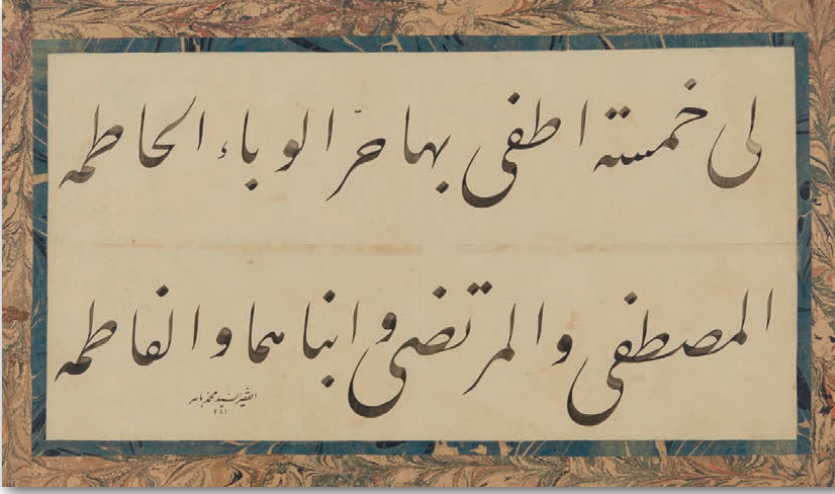 لی خمسة اطفی بها حرّ الوباء الحاطمه
المصطفی والمرتضی وابناهما والفاطمه
الفقیر السید محمد